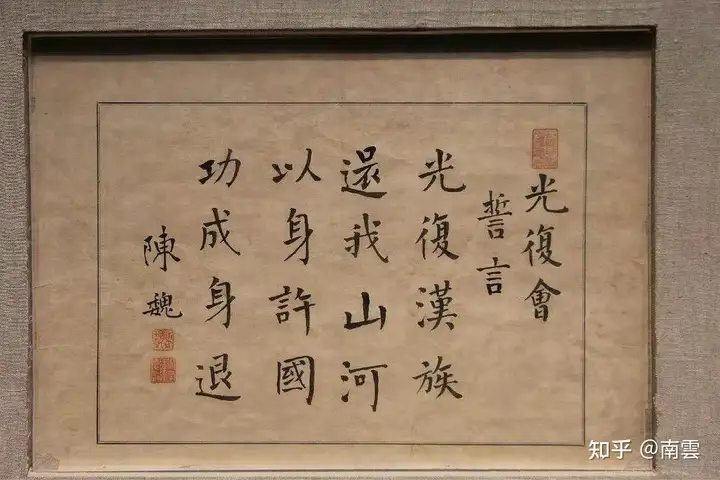 光復會
誓言
光復漢族
還我山河
以身許國
功成身退
陳魏
知乎 @南雲